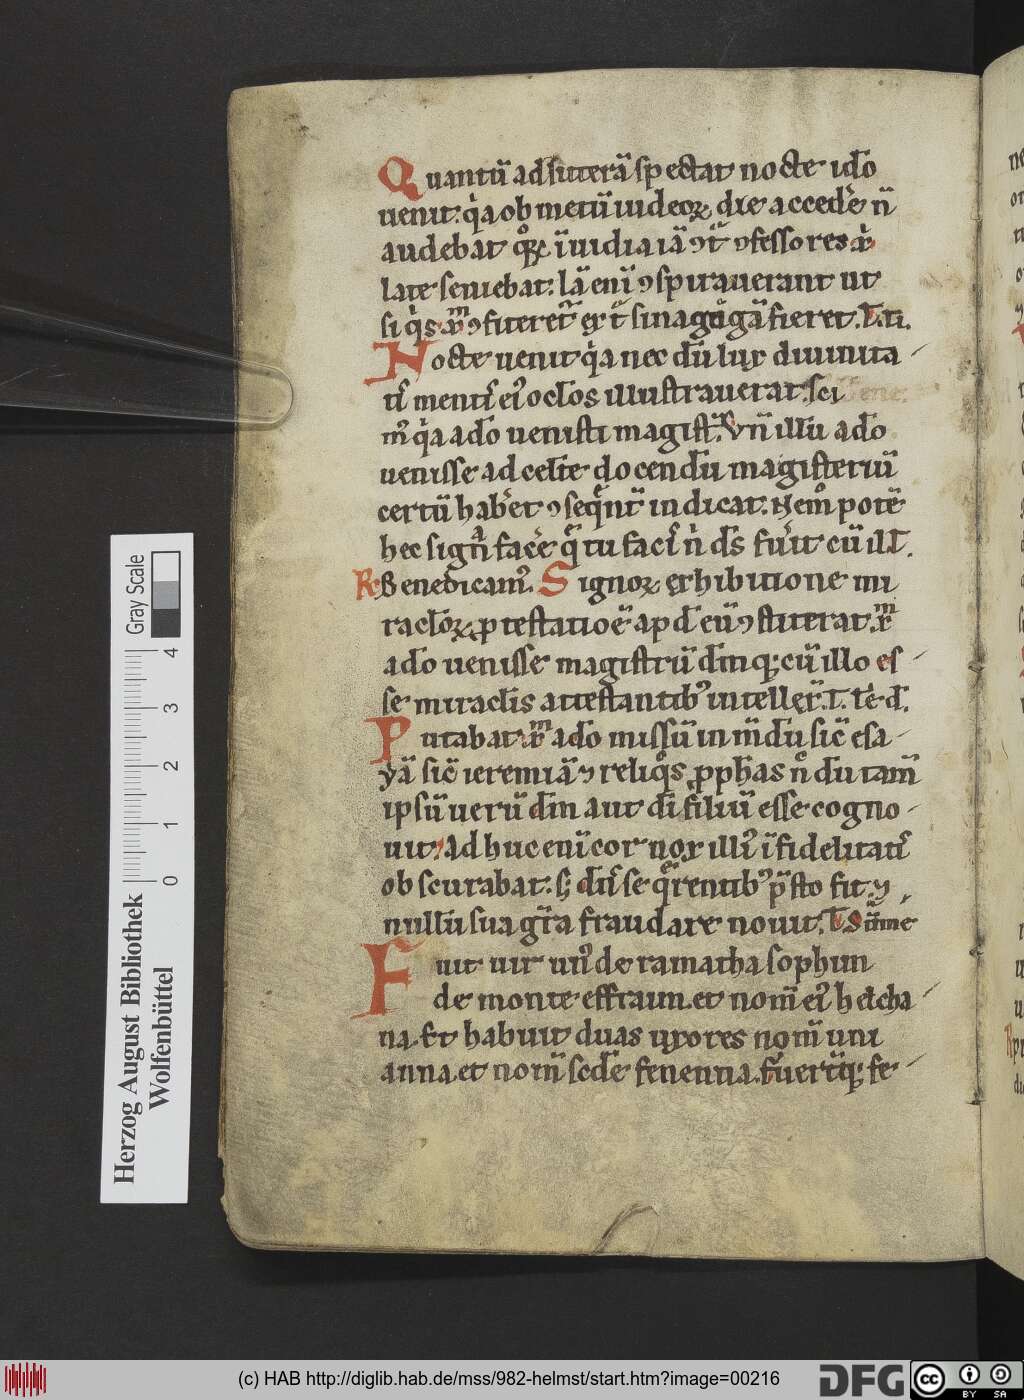 Quantū ad lit̄terā spectat nocte id̄o
uenit. q̇a ob metū iudeoꝝ die acceder̄e n̄
audebat q̊ꝝ ı̄uidia iā ꝯt̄ ꝯfessores xp̄i
late seuiebat. Iā enī ꝯspirauerant ut
si q̇s xp̄m ꝯfiteret᷑ ex̄t sinagogā fieret. L. ii.
Nocte uenit q̇a nec dū lux diuinita
tı̄ menti eı̾ oclo̅s illustrauerat. sci
m᷒ q̇a a dō uenisti magist̄. Vn̄ illū a dō
uenisse ad celıe docendū magisteriū
certū hab̄et ꝯseq̄nt̄ indicat. Nem̊ potē
hec signa facē q̄ tu facı̄ ṅ ds̄ fūit cū ill̄.
R Benedicam᷒. Signoꝝ exhibitione mi
racl̄oꝝ ꝓtestatioē apd̄ eū ꝯstiterat xp̄m
a dō uenisse magistrū dm̄ qꝫ cū illo es
se miracl̄is attestantib᷒ intellex̄. L. Te. d.
Putabat xp̄m a dō missū in mūdū sic̄ esa
yā sic̄ ieremiā ⁊ reliq̊s ꝓphas n̄ dū tam̄
ipsū uerū dm̄ aut di filiū esse cogno
uit. Adhuc enī cor nox ill̾ ı̄fidelitatı̄
obscurabat. sꝫ dn̄s se q̄rentib᷒ p̄sto fit. ⁊
nullū sua gr̄a fraudare nouit. L Sūme
Fuit uir un᷒ de ramatha sophim
de monte effraim. et nom̄ ei᷒ helcha
na. Et habuit duas uxores nom̄ uni
anna. et nom̄ scd̄e fenenna. fūertqꝫ fe
Herzog August Bibliothek
Wolfenbüttel
Gray Scale
0 1 2 3 4
(c) HAB http://diglib.hab.de/mss/982-helmst/start.htm?image=00216
DFG
cc BY SA